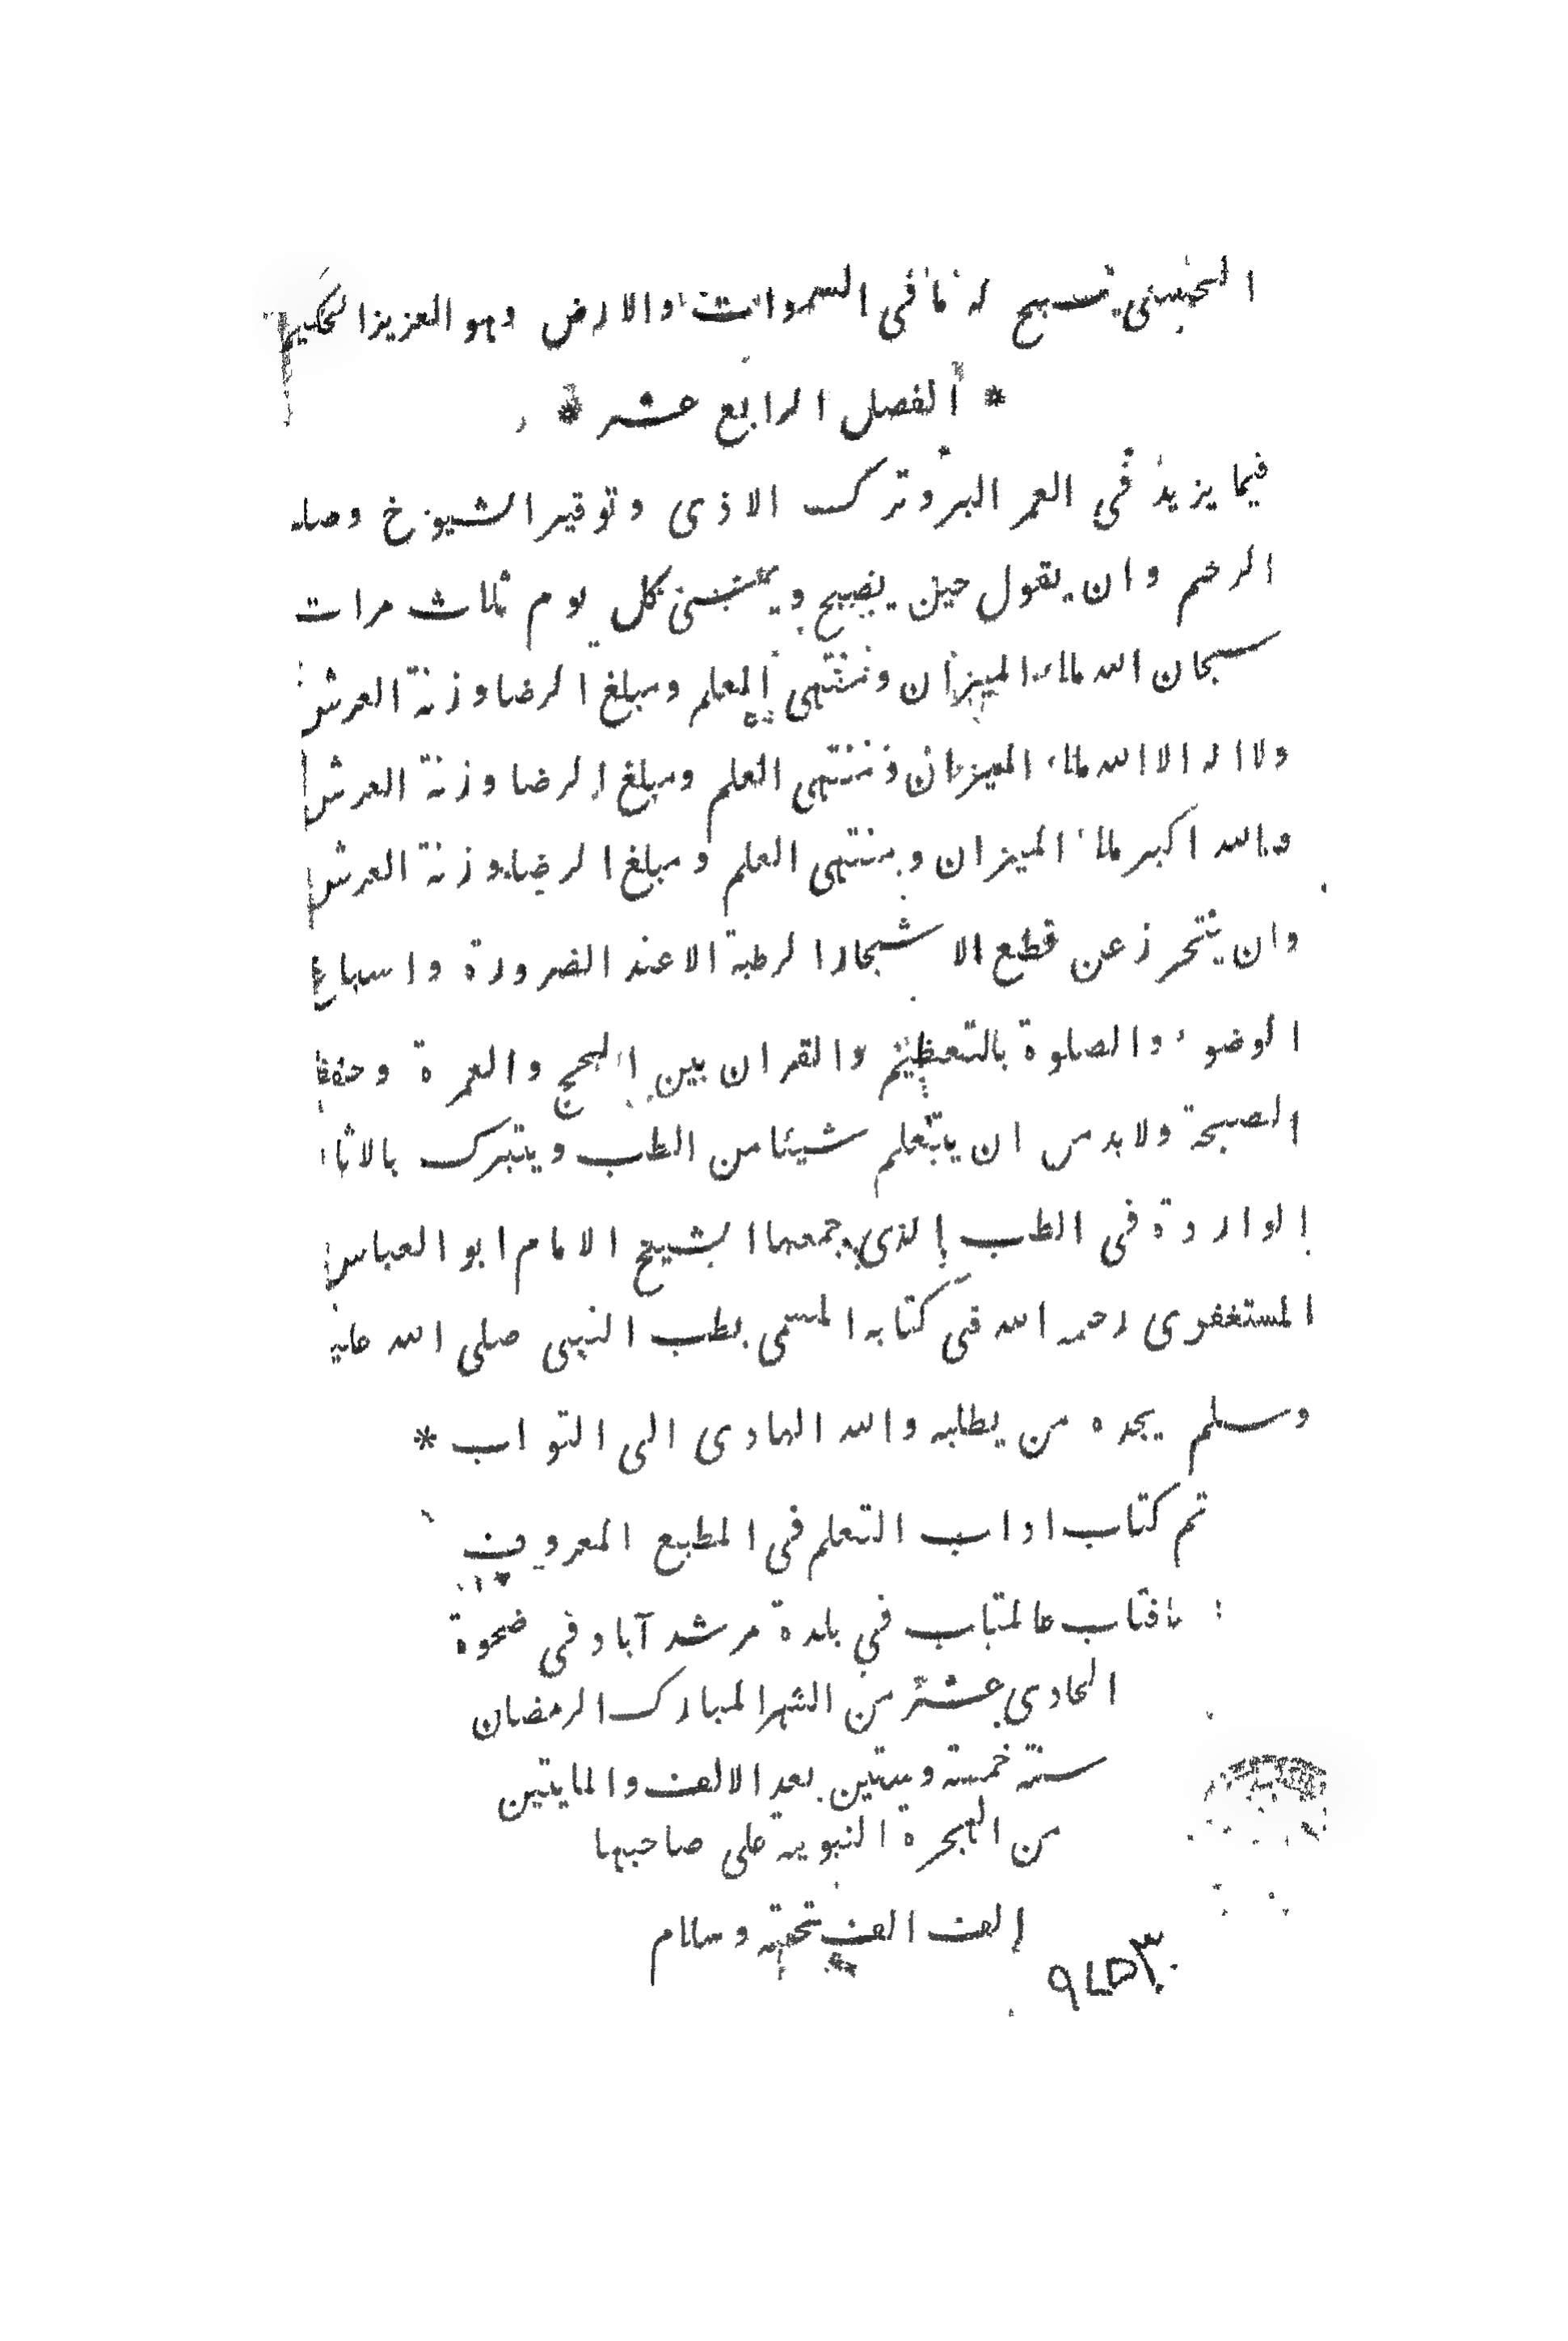 الحسنى يسبح له ما فى السموات والارض وهو العزيز الحكيم
* الفصل الرابع عشر *
فيما يزيد فى العمر البر وترك الاذى وتوقير الشيوخ وصلة
الرحم وان يقول حين يصبح ويمسى كل يوم ثلاث مرات
سبحان الله ملاء الميزان ومنتهى العلم ومبلغ الرضا وزنة العرش
ولا اله الا الله ملاء الميزان ومنتهى العلم ومبلغ الرضا وزنة العرش
والله اكبر ملاء الميزان ومنتهى العلم ومبلغ الرضا وزنة العرش
وان يتحرز عن قطع الاشجار الرطبة الا عند الضرورة واسباغ
الوضوء والصلوة بالتعظيم والقران بين الحج والعمرة وحفظ
الصحة ولا بد من ان يتعلم شيئا من الطب ويتبرك بالاثار
الواردة فى الطب الذى جمعها الشيخ الامام ابو العباس
المستغفرى رحمه الله فى كتابه المسمى بطب النبى صلى الله عليه
وسلم يجده من يطلبه والله الهادى الى التواب *
تم كتاب اداب التعلم فى المطبع المعروف
بافتاب عالمتاب في بلدة مرشد آباد فى ضحوة
الحادي عشر من الشهر المبارك الرمضان
سنة خمسة وستين بعد الالف والمايتين
من الهجرة النبوية على صاحبها
الف الف تحية وسلام